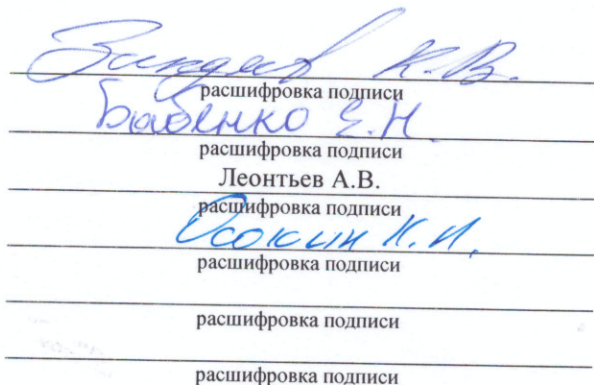 К.В.
расшифровка подписи
Бабенко Е.Н.
расшифровка подписи
Леонтьев А.В.
расшифровка подписи
Осокин К.И.
расшифровка подписи
расшифровка подписи
расшифровка подписи